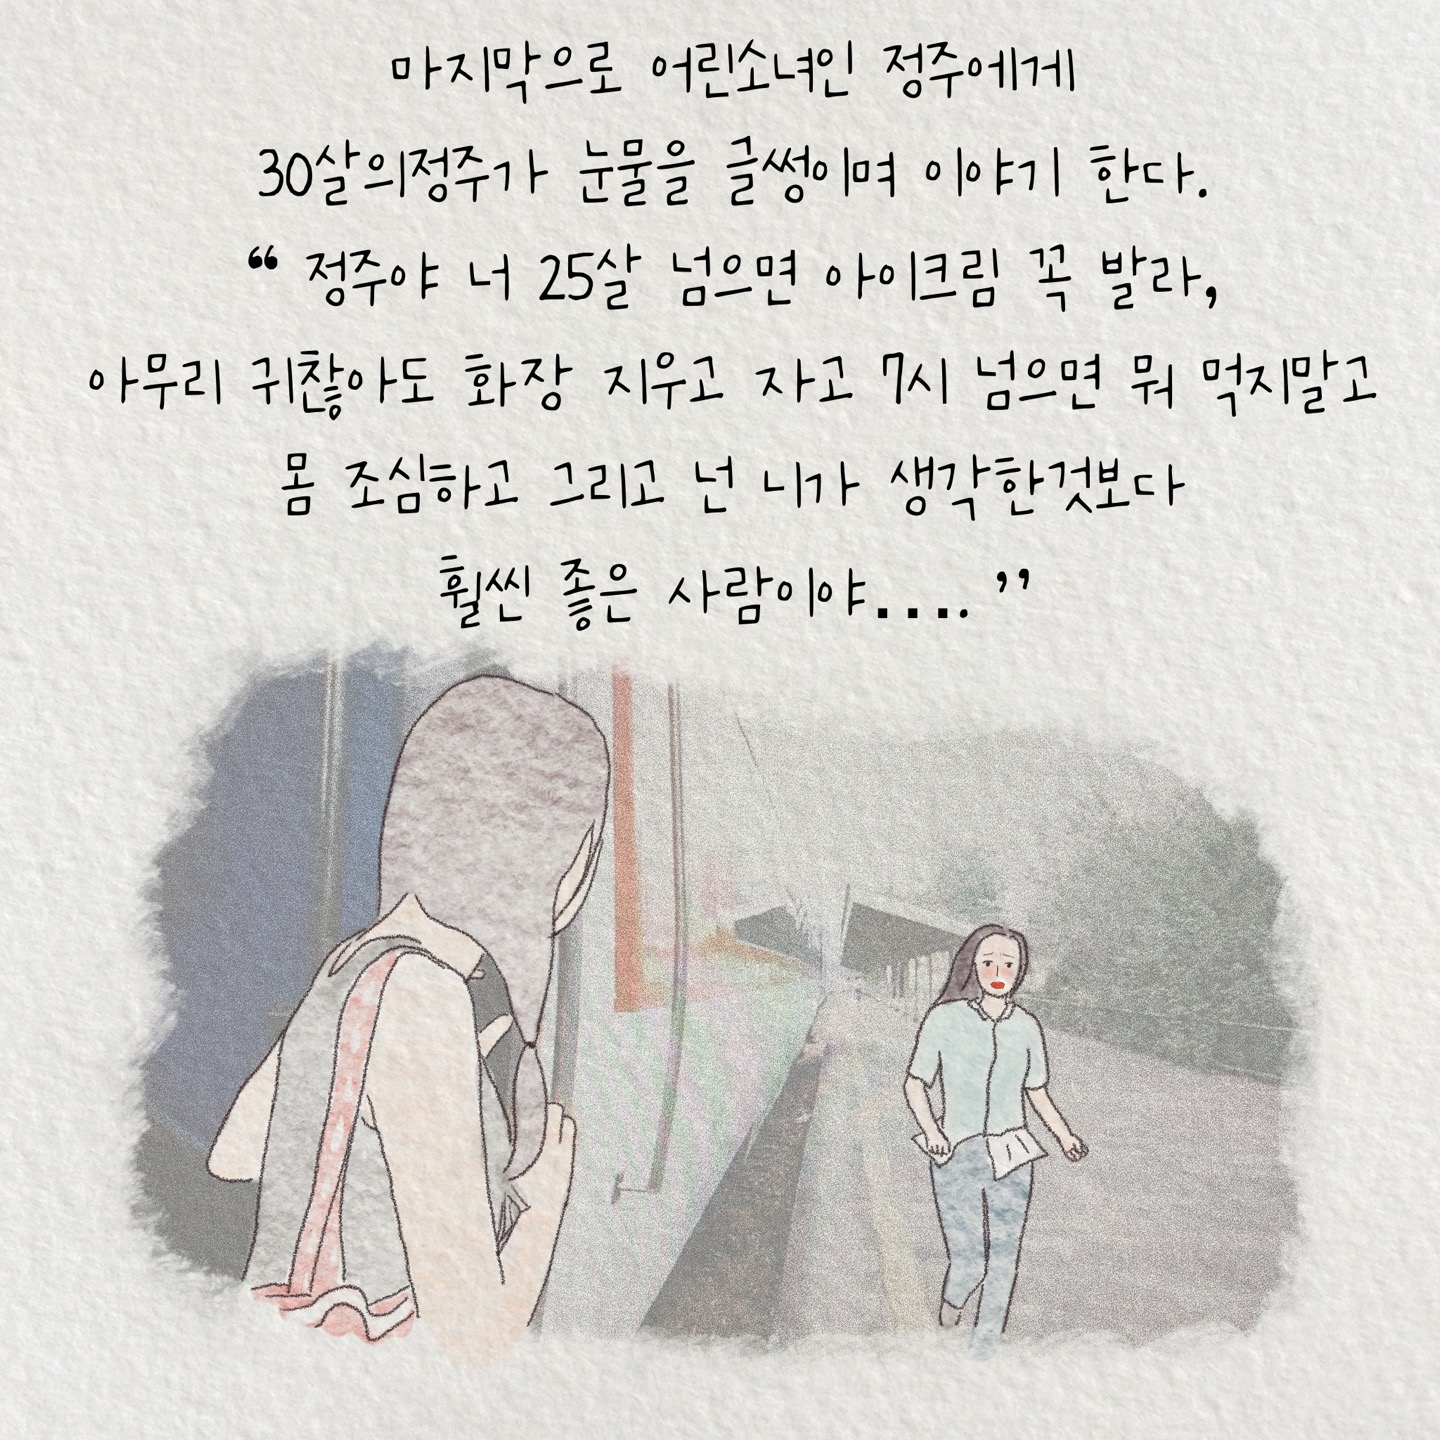 마지막으로 어린소녀인 정주에게
30살의정주가 눈물을 글썽이며 이야기 한다.
“ 정주야 너 25살 넘으면 아이크림 꼭 발라,
아무리 귀찮아도 화장 지우고 자고 7시 넘으면 뭐 먹지말고
몸 조심하고 그리고 넌 니가 생각한것보다
훨씬 좋은 사람이야.... ”